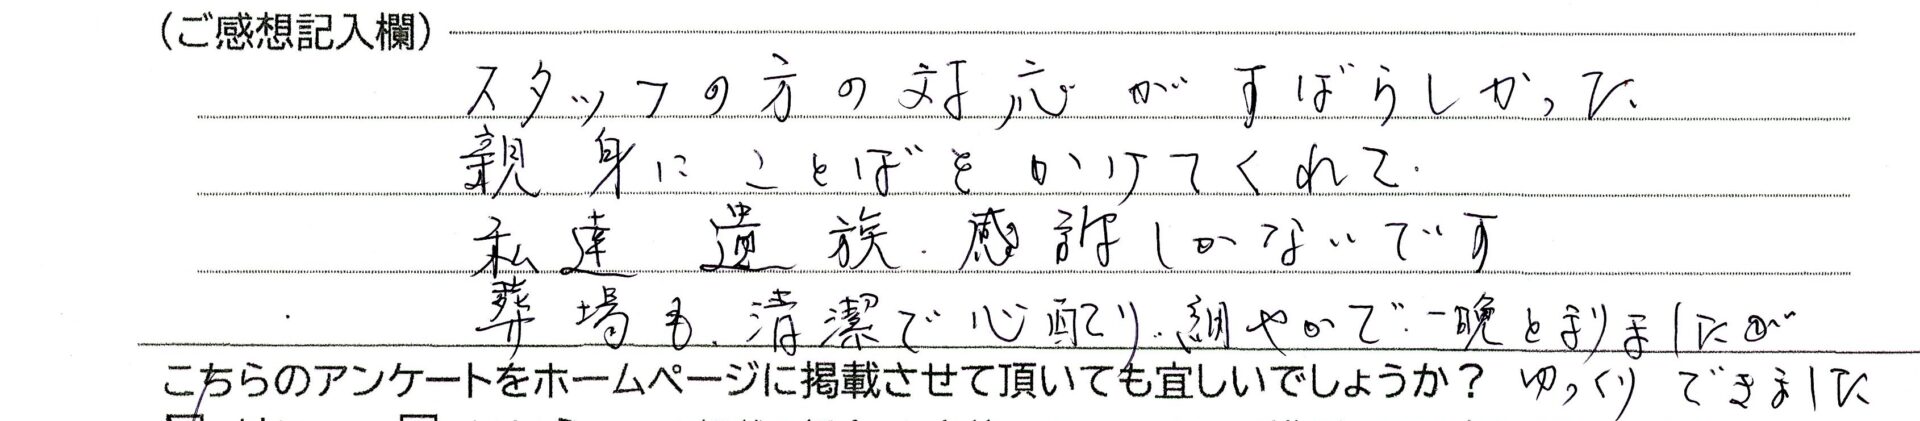 (ご感想記入欄)
スタッフの方の対応がすばらしかった
親身にことばをかけてくれて.
私達 遺族.感謝しかないです
葬場も.清潔で心配り.細やかで.一晩とまりましたが
こちらのアンケートをホームページに掲載させて頂いても宜しいでしょうか? ゆっくりできました